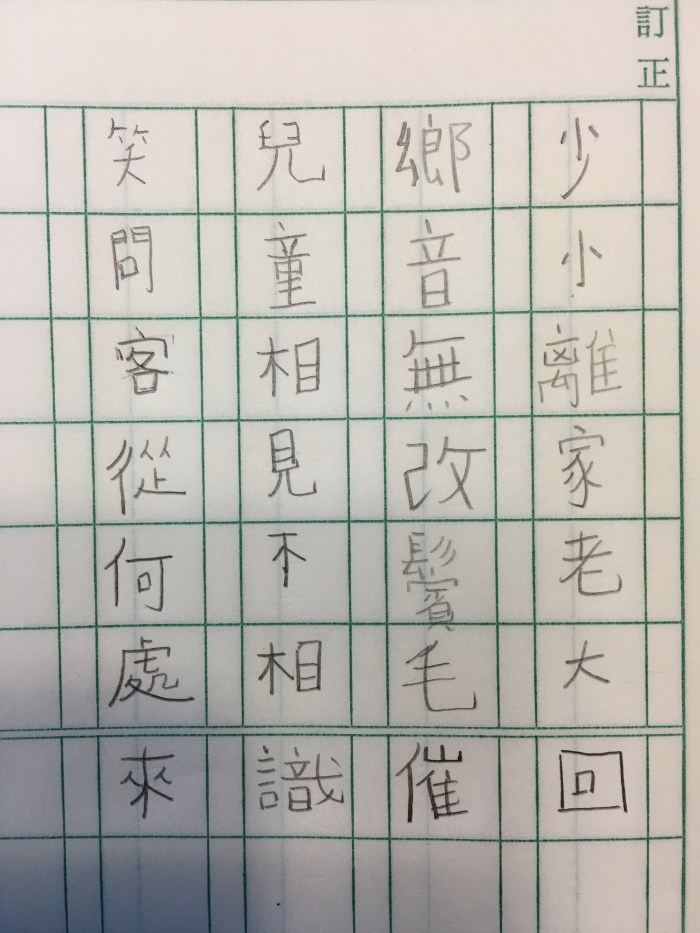 訂正
少小離家老大回
鄉音無改鬢毛催
兒童相見不相識
笑問客從何處來